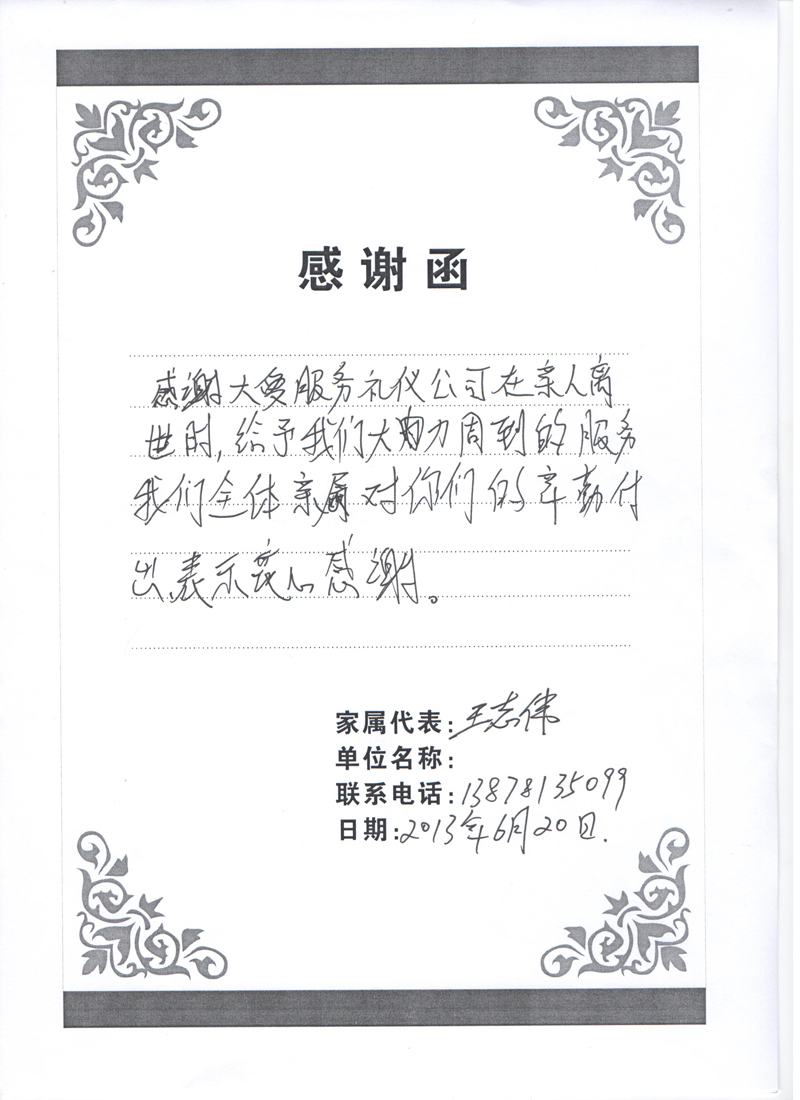 感谢函
感谢大爱服务礼仪公司在亲人离
世时,给予我们大力周到的服务
我们全体亲属对你们的辛勤付
出表示衷心感谢。
家属代表:王志伟
单位名称:
联系电话:13878135099
日期:2013年6月20日.